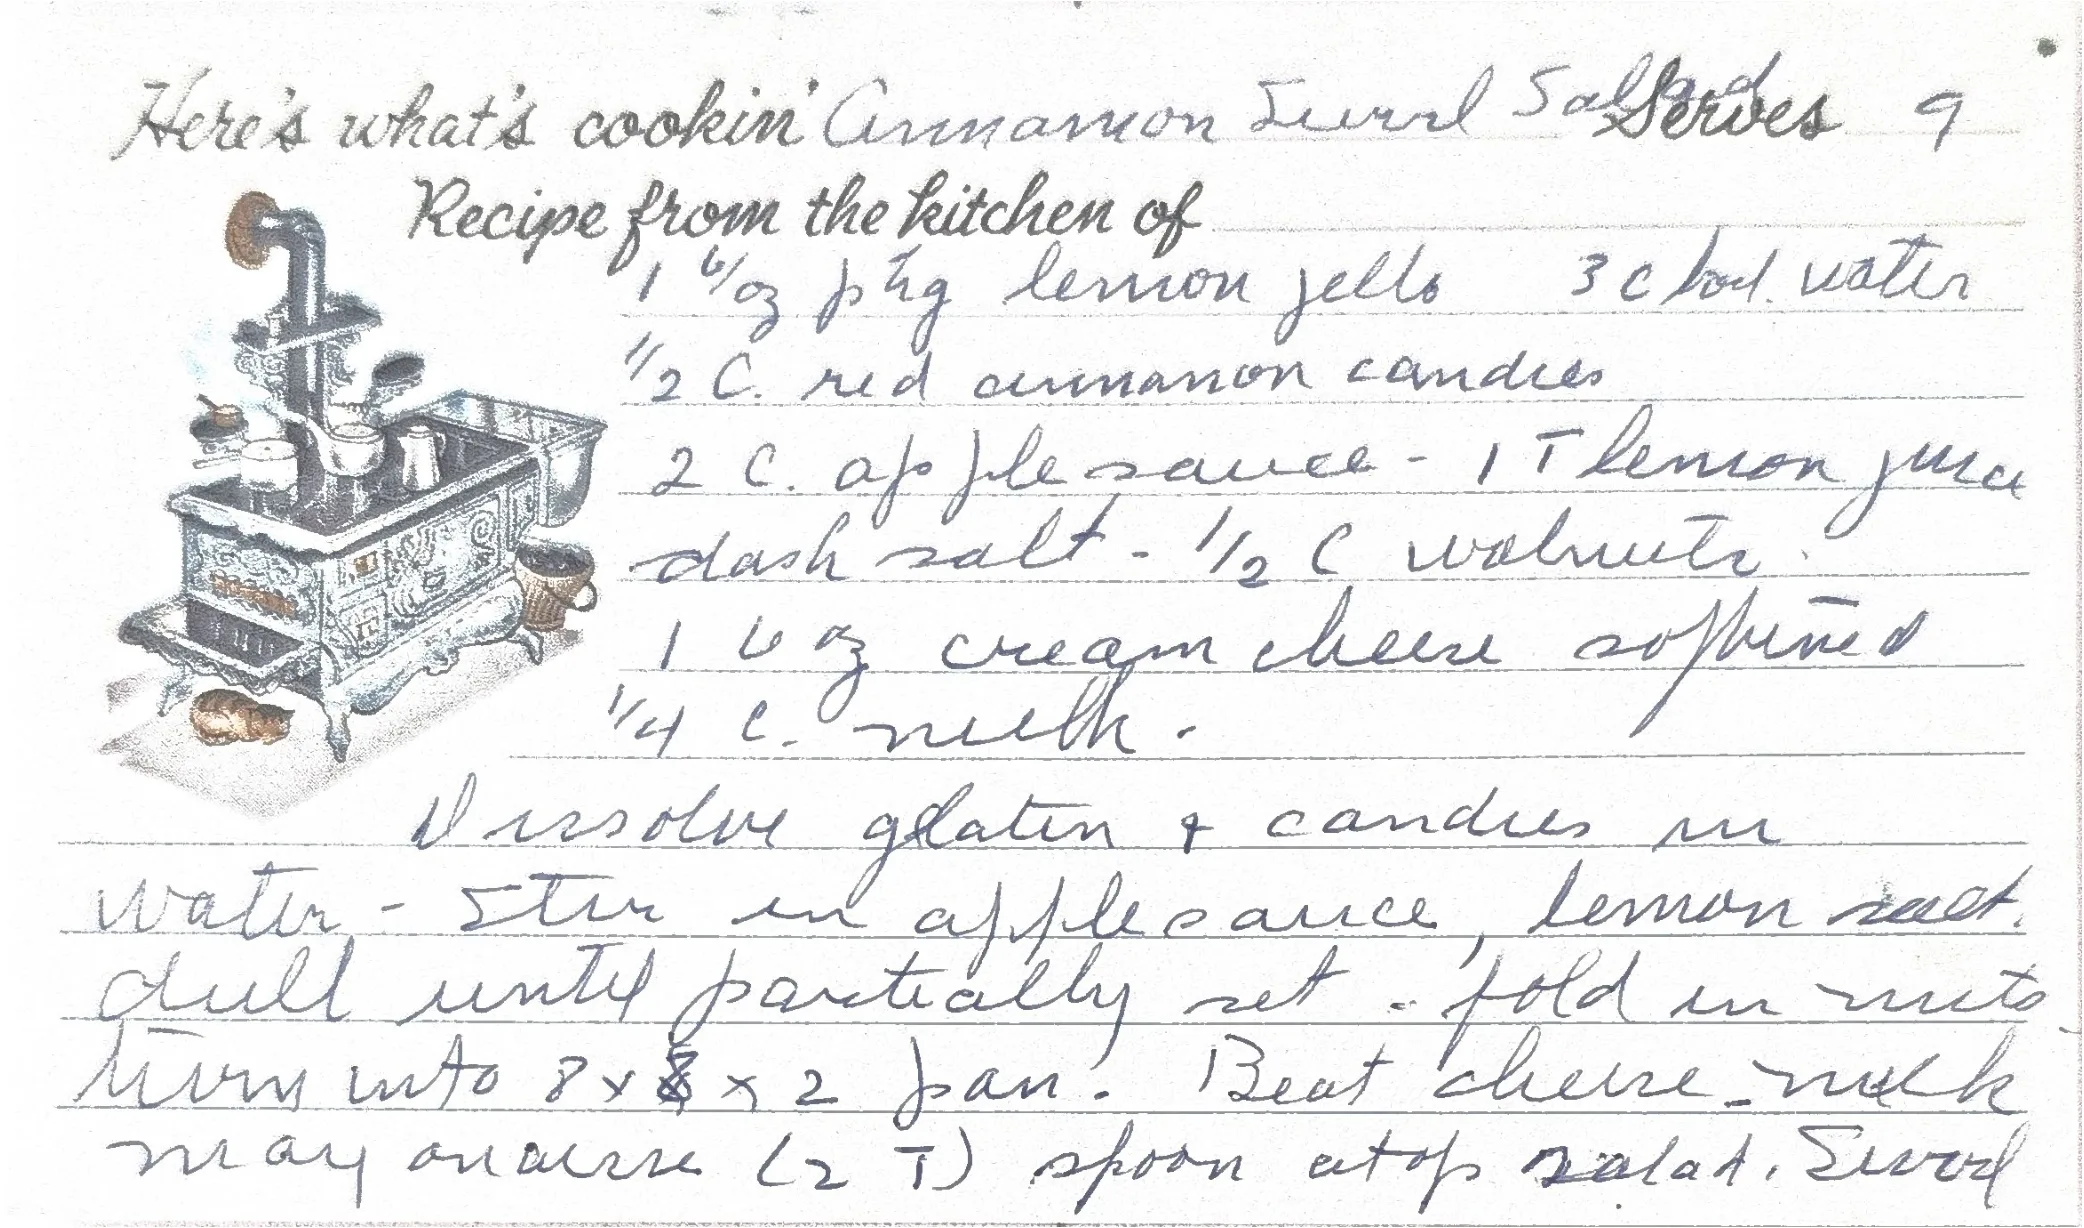 Here's what's cookin' Cinnamon Swirl Salad Serves 9
Recipe from the kitchen of
1 6/oz pkg lemon jello 3 c boil. water
1/2 C. red cinnamon candies
2 C. applesauce - 1 T lemon juice
dash salt - 1/2 C walnuts.
1 6 oz cream cheese softened
1/4 c. milk.
Dissolve gelatin & candies in
water - Stir in applesauce, lemon salt.
chill until partially set - fold in nuts
turn into 8 x 8 x 2 pan. Beat cheese - milk
mayonaisse (2 T) spoon atop salad. Swirl